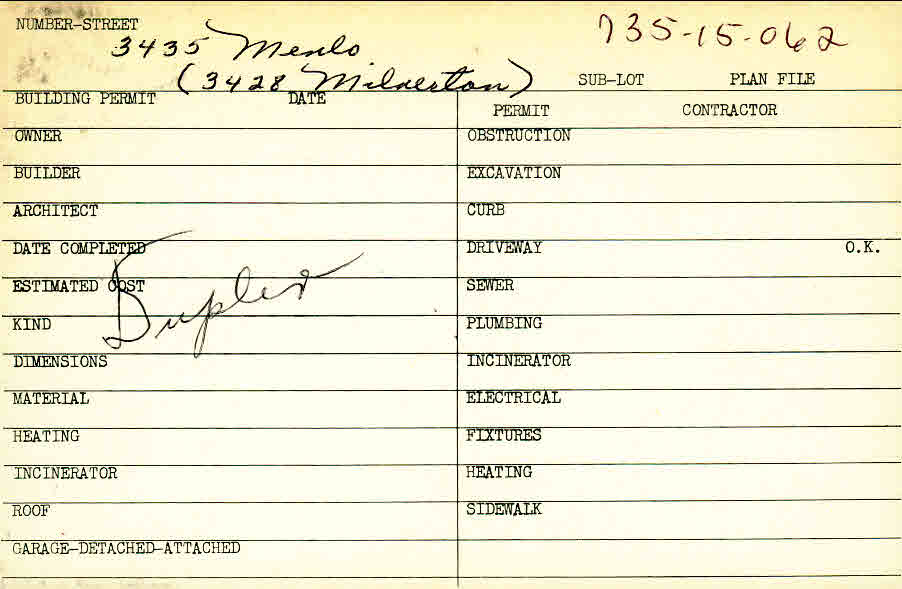 NUMBER-STREET
3435 Menlo 735-15-062
(3428 Milverton) SUB-LOT PLAN FILE
BUILDING PERMIT DATE
PERMIT CONTRACTOR
OWNER OBSTRUCTION
BUILDER EXCAVATION
ARCHITECT CURB
DATE COMPLETED DRIVEWAY O.K.
ESTIMATED COST SEWER
Duplex
KIND PLUMBING
DIMENSIONS INCINERATOR
MATERIAL ELECTRICAL
HEATING FIXTURES
INCINERATOR HEATING
ROOF SIDEWALK
GARAGE-DETACHED-ATTACHED